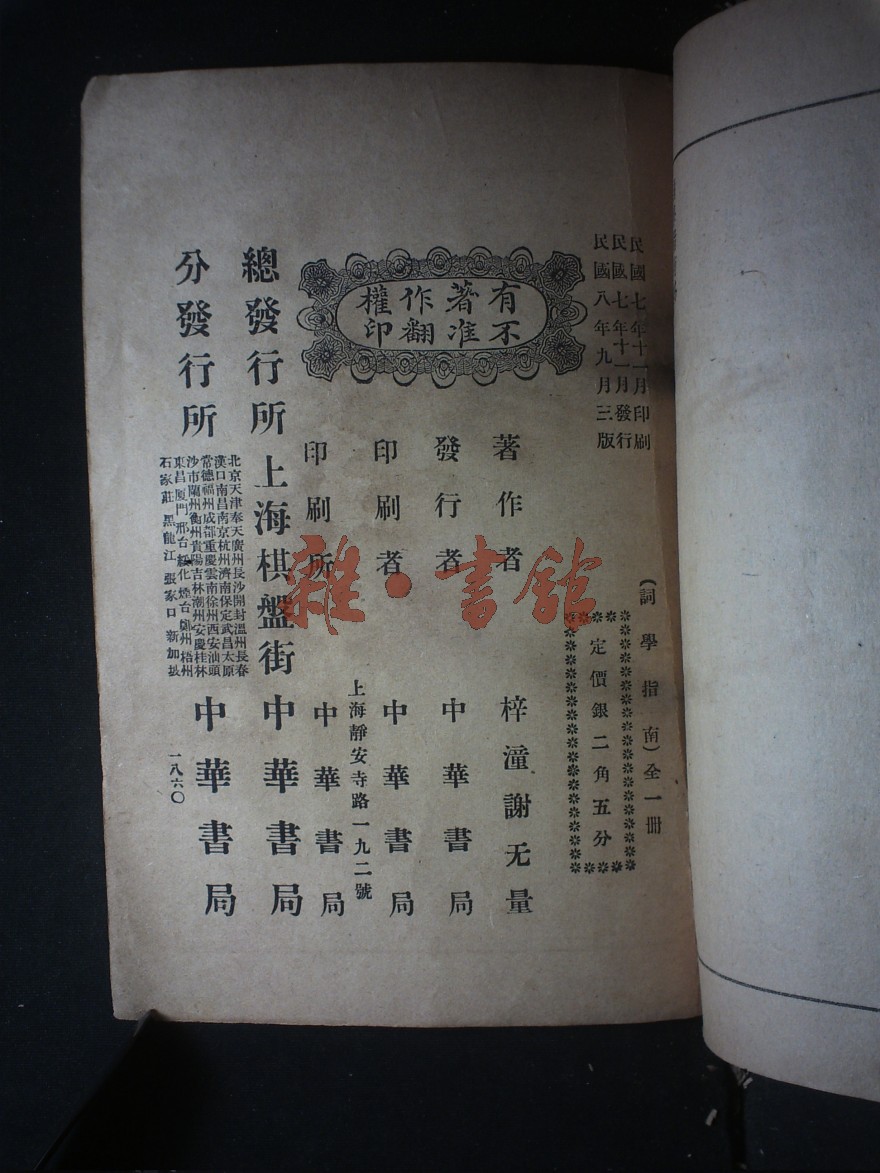 民國七年十一月印刷
民國七年十一月發行
民國八年九月三版
(詞學指南)全一冊
定價銀二角五分
有著作權
不准翻印
著作者 梓潼謝无量
發行者 中華書局
印刷者 中華書局
上海靜安寺路一九二號
印刷所 中華書局
總發行所 上海棋盤街 中華書局
分發行所 中華書局
北京天津奉天廣州長沙開封溫州長春
漢口南昌南京杭州濟南保定武昌太原
常德福州成都重慶雲南徐州西安汕頭
沙市蘭州衡州貴陽吉林潮州安慶桂林
東昌厦門邢台綏化煙台 州梧州
石家莊 黑龍江 張家口 新加坡
一八六〇
雜·書館